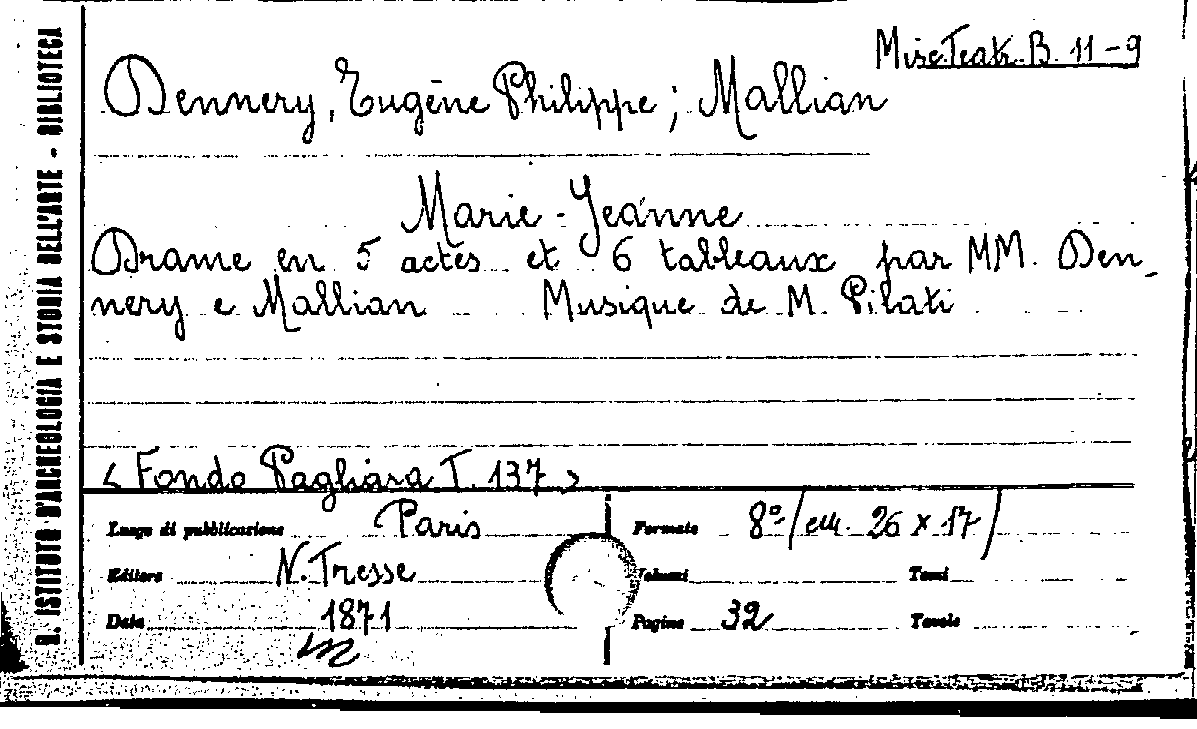 R. ISTITUTO D'ARCHEOLOGIA E STORIA DELL'ARTE - BIBLIOTECA
Misc. Teatr. B. 11-9
Dennery, Eugène Philippe; Mallian
Marie-Jeanne
Drame en 5 actes et 6 tableaux par MM. Den-
nery e Mallian Musique de M. Pilati
< Fondo Pagliara T. 137 >
Luogo di pubblicazione Paris Formato 8º (cm. 26 x 17)
Editore N. Tresse Volumi Tomi
Data 1871 Pagine 32 Tavole